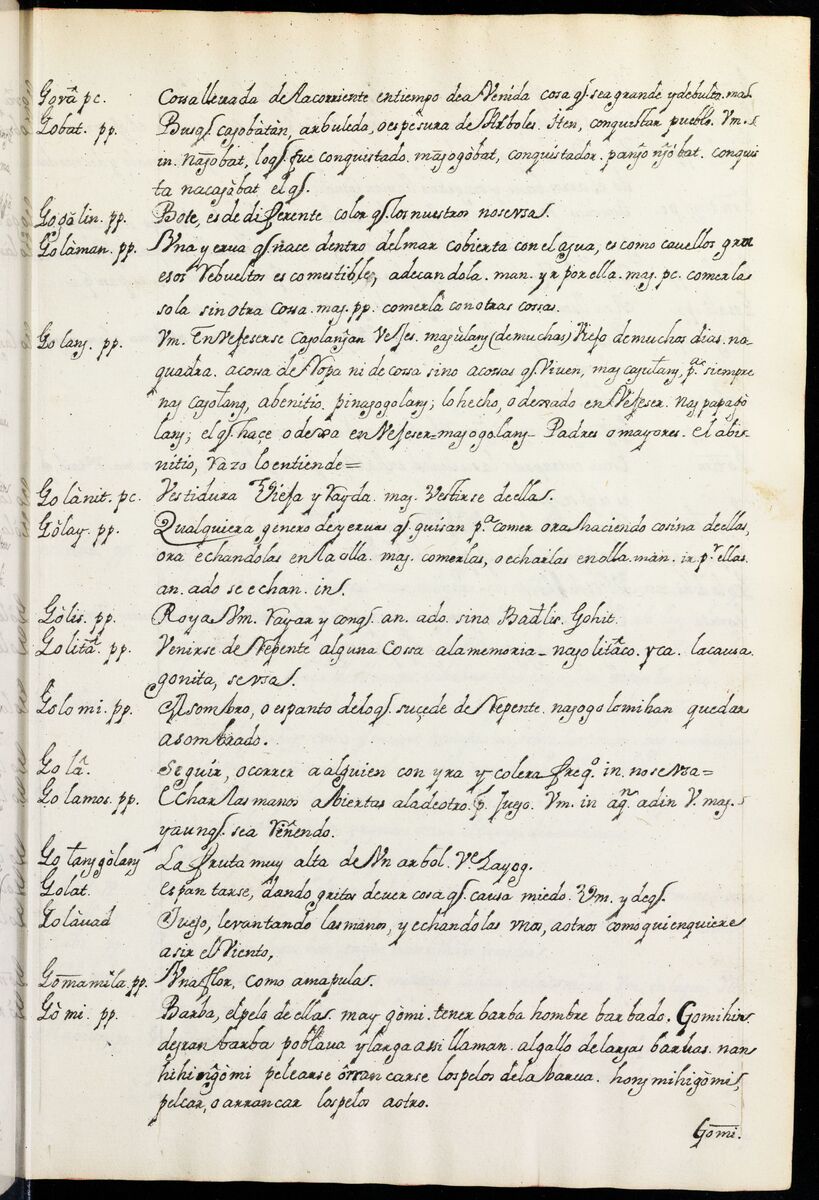 Govâ pc. Cossa llevada de la corriente en tiempo de avenida cosa qʃ. sea grande y de bulto. maʃ
Gobat. pp. Busqʃ. cagobàtàn, arbuleda, o espesura de Arboles. Iten, conquistar pueblo. Vm.
in. Nagobat, loqʃ. fue conquistado. magogòbat, conquistador. conquis
ta nacagàbat el qʃ.
pp. Bote, es de diferente color qʃ. los nuestros no se usa.
Golàman. pp. Una yerua qʃ. nace dentro del mar cobierta con el agua, es como cauellos gru
esos rebueltos es comestible, adecandola. man. yr por ella. mag. pc. comerla
sola sin otra cossa. mag. pp. comerla con otras cossas.
Golang. pp. Vm. En vegeserse (de muchas) Viejo de muchos dias. no
quadra. a cossa de Ropa ni de cossa sino a cossas qʃ. viven, siempre
nag cagolang, abenitio. pinagogolang; lo hecho, o dexado en Vegeser. nag papagò
lang; el qʃ. hace o dexa en Vegeser=magogolang- Padres o mayores. el abi-
nitio, razo lo entiende=
Golànit. pc. Vestidura Vieja y rayda. mag. Vestirse de ella.
Gòlay. pp. Qualquiera genero de yeruas qʃ. guisan pª. comer ora haciendo cosina de ellas,
ora echandolas en la olla. mag. comerlas, o echarlas en olla. man. ir pʳ. ellas.
an. ado se echan. in.
Gòlis. pp. Roya Vm. rayar y conqʃ. an. ado. sino. Badlis. Gohit.
pp. Venirse de repente alguna Cossa a la memoria- yca. la causa.
gonita, se usa.
Golomi. pp. Asombro, o espanto de loqʃ. suçede de repente. nagogolomihan quedar
asombrado.
Golâ. Seguir, o correr a alguien con yra y colera freqº. in. no se usa=
Golamos. pp. Echar las manos abiertas a la de otro. pʳ. Juego. Vm. in
yaunqʃ. sea riñendo.
La fruta muy alta de un arbol. Vᵉ. Layog.
Golat. espantarse, dando gritos de ver cosa qʃ. causa miedo. Vm. y deqʃ.
Golàuad Juego, levantando las manos, y echandolas unos, a otros como quien quiere
asir el Viento,
Gomamila. pp. Una flor, como amapula.
Gòmi. pp. Barba, el pelo de ellas. may gòmi. tener barba hombre barbado. Gomihin
barba poblaua y larga assi llaman. al gallo de largas baruas. nan
pelearse arrancarse los pelos de la barua.
pelear, o arrancar los pelos a otro.
Gomi.